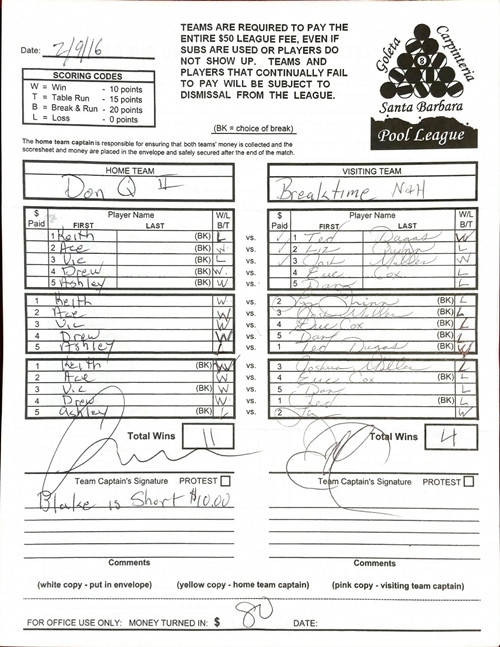 Date: 2/9/16
TEAMS ARE REQUIRED TO PAY THE
ENTIRE $50 LEAGUE FEE, EVEN IF
SUBS ARE USED OR PLAYERS DO
NOT SHOW UP. TEAMS AND
PLAYERS THAT CONTINUALLY FAIL
TO PAY WILL BE SUBJECT TO
DISMISSAL FROM THE LEAGUE.
(BK = choice of break)
SCORING CODES
W = Win - 10 points
T = Table Run - 15 points
B = Break & Run - 20 points
L = Loss - 0 points
Goleta Carpinteria
8
Santa Barbara
Pool League
The home team captain is responsible for ensuring that both teams' money is collected and the
scoresheet and money are placed in the envelope and safely secured after the end of the match.
HOME TEAM VISITING TEAM
Don Q II Breaktime N&H
$ Paid Player Name FIRST LAST W/L B/T $ Paid Player Name FIRST LAST W/L B/T
1 Keith (BK) L vs. 1 Ted Dugas W
2 Ace (BK) W vs. 2 L
3 Vic (BK) L vs. 3 Miller W
4 Drew (BK) W vs. 4 Euc Cox L
5 Ashley (BK) W vs. 5 Dan L
1 Keith W vs. 2 (BK) L
2 Ace W vs. 3 Miller (BK) L
3 Vic W vs. 4 Euc Cox (BK) L
4 Drew W vs. 5 Dan (BK) L
5 Ashley L vs. 1 Ted Dugas (BK) W
1 Keith (BK) W vs. 3 Joshua Miller L
2 Ace W vs. 4 Euc Cox (BK) L
3 Vic (BK) W vs. 5 Dan L
4 Drew W vs. 1 Ted (BK) L
5 Ashley (BK) L vs. 2 W
Total Wins 11 Total Wins 4
Team Captain's Signature PROTEST Team Captain's Signature PROTEST
Blake is Short $10.00
Comments Comments
(white copy - put in envelope) (yellow copy - home team captain) (pink copy - visiting team captain)
FOR OFFICE USE ONLY: MONEY TURNED IN: $ 80 DATE: